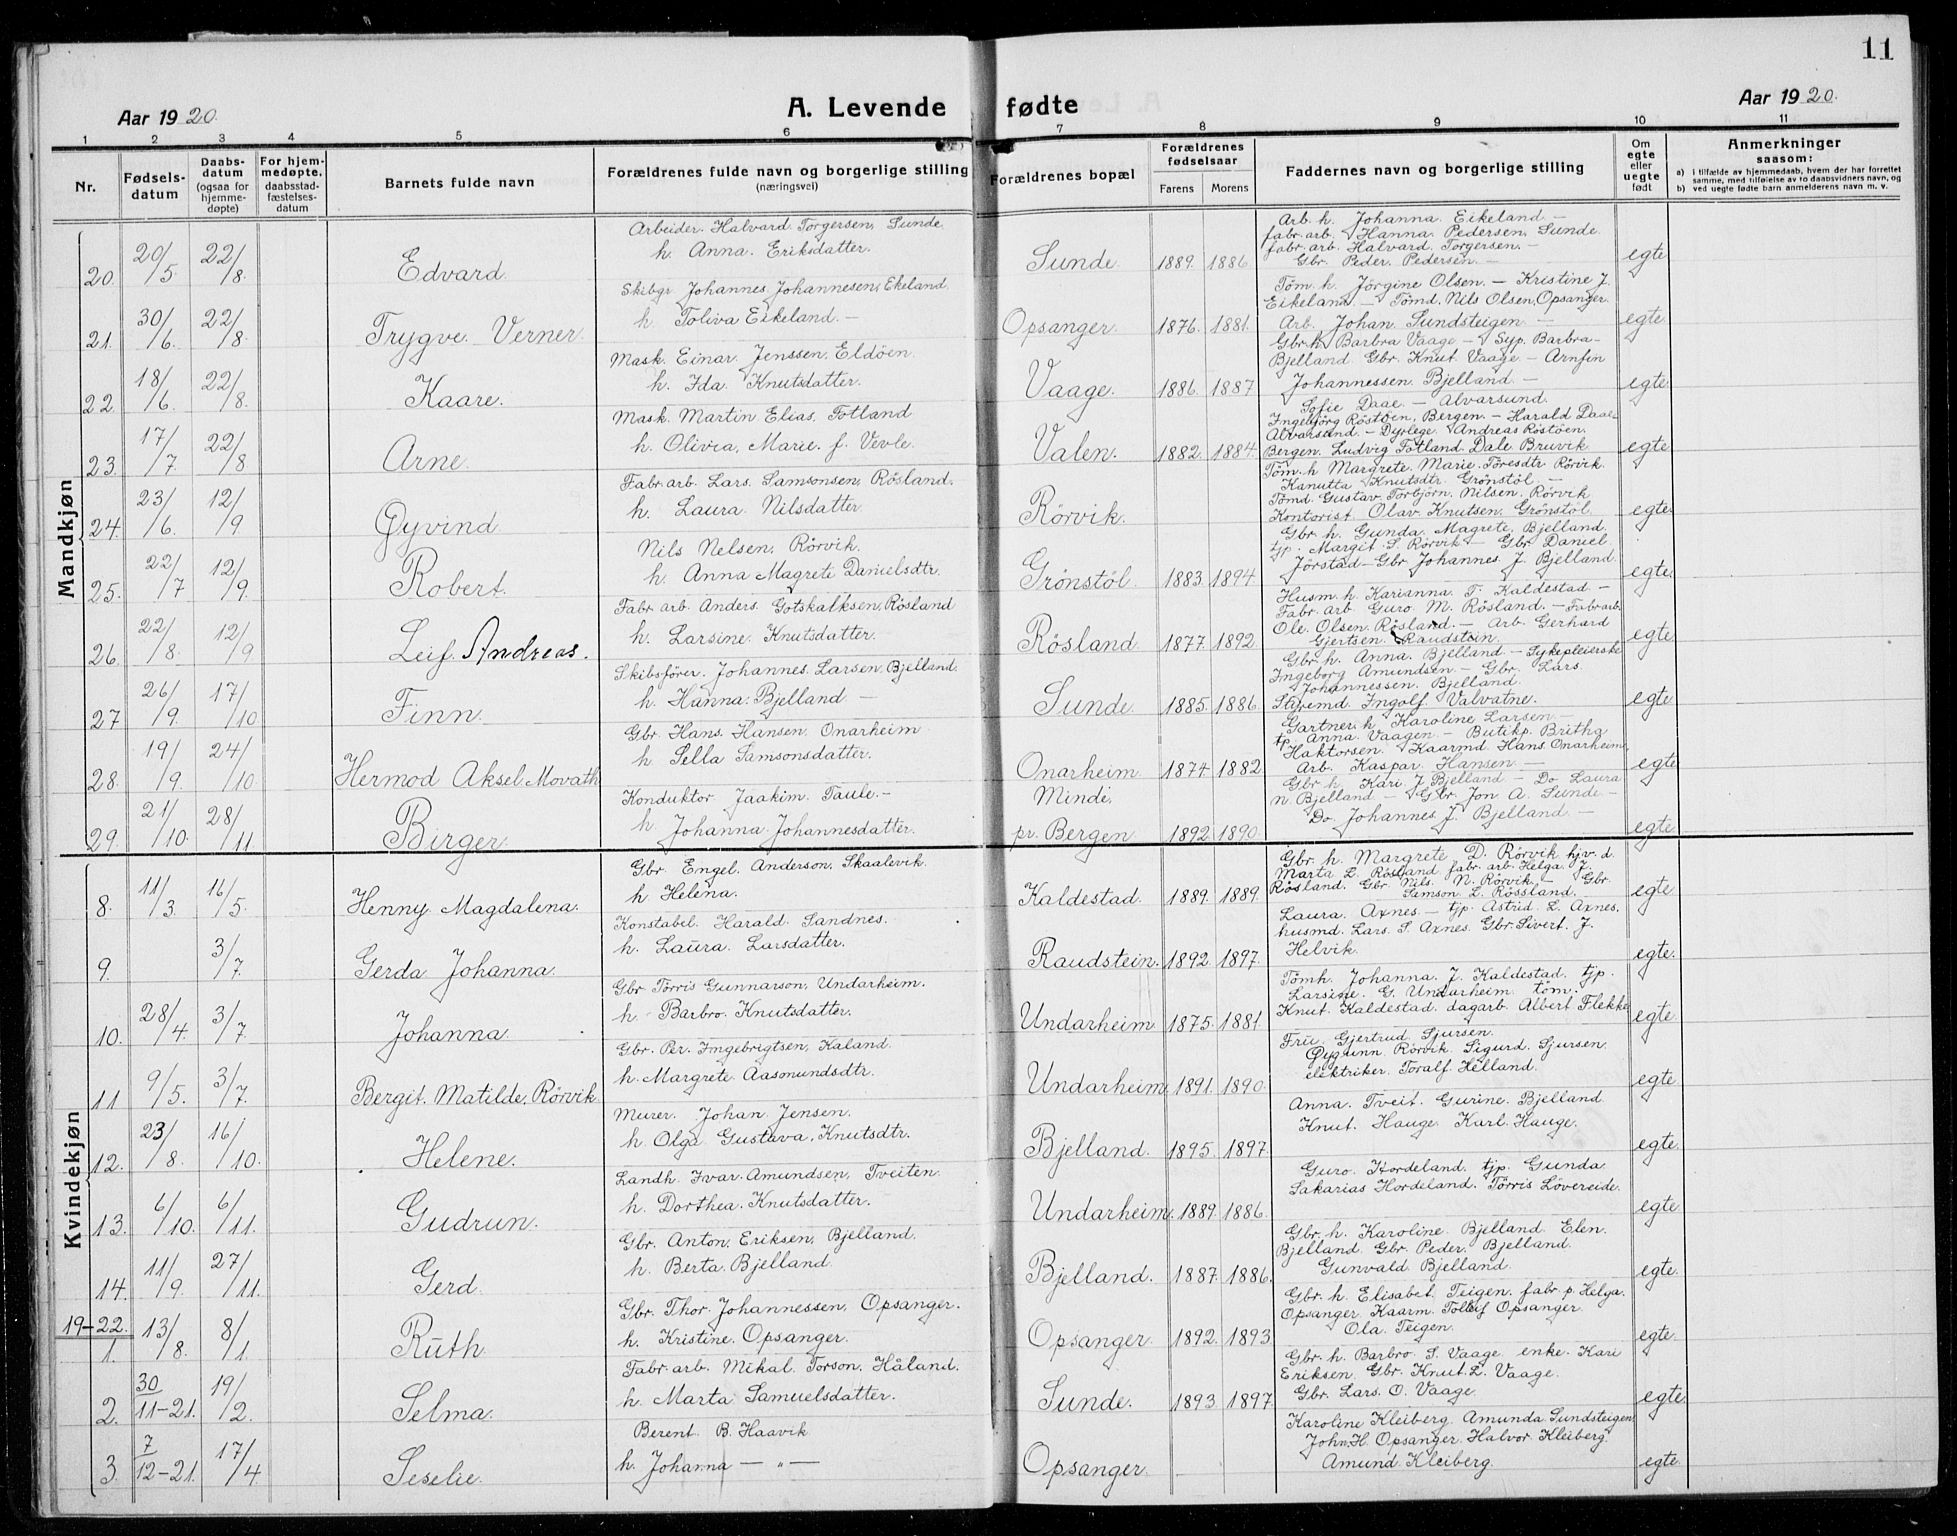 11
Aar 1920. A. Levende fødte Aar 1920.
1 2 3 4 5 6 7 8 9 10 11
Nr. Fødselsdatum Daabsdatum (ogsaa for hjemmedøpte) For hjemmedøpte, daabsstadfæstelsesdatum Barnets fulde navn Forældrenes fulde navn og borgerlige stilling (næringsvei) Forældrenes bopæl Forældrenes fødselsaar Farens Morens Faddernes navn og borgerlige stilling Om egte eller uegte født Anmerkninger saasom:
a) i tilfælde av hjemmedaab, hvem der har forrettet samme, med tilføielse av to daabsvidners navn, og
b) ved uegte fødte barn anmelderens navn m. v.
Mandkjøn
20. 20/5 22/8 Edvard. Arbeider. Halvard Torgersen, Sunde. h. Anna. Eriksdatter. Sunde. 1889. 1886. Arb. h. Johanna. Eikeland – fabr. arb. Hanna Pedersen, Sunde. fabr. arb. Halvard Torgersen. – Gbr. Peder Pedersen. – egte.
21. 30/6. 22/8. Trygve Verner. Skibgr Johannes Johannesen, Ekeland. h. Toliva Eikeland. – Opsanger. 1876. 1881. Töm. h. Jörgine Olsen. – Kristine J. Eikeland. – Tömd. Nils Olsen, Opsanger. Arb. Johan Sundsteigen – egte.
22. 18/6. 22/8. Kaare. Mask. Einar Jenssen, Eldöen. h. Ida Knutsdatter. Vaage. 1886. 1887 Gbr. h. Barbra Vaage – Syp. Barbra Bjelland Gbr. Knut Vaage. – Arnfin Johannessen. Bjelland – egte.
23. 17/7. 22/8 Arne. Mask. Martin Elias. Totland h. Olivia, Marie. f. Vevle. Valen. 1882. 1884. Sofie Daae – Alvarsund. Ingebjörg Röstöen, Bergen. – Harald Daae Alvarsund – Dyrlege. Andreas Röstöen. Bergen. Ludvig Totland. Dale Bruvik egte.
24. 23/6 12/9 Øyvind. Fabr. arb. Lars. Samsonsen, Rösland. h. Laura Nilsdatter. Rörvik. Töm. h Margrete. Marie. Töresdtr Rörvik. Kanutta Knutsdtr. Grönstöl – Tömd. Gustav Torbjörn, Nilsen. Rörvik Kontorist Olav Knutsen. Grönstöl egte.
25. 22/7 12/9. Robert. Nils Nelsen, Rörvik. h. Anna Magrete Danielsdtr. Grönstöl. 1883. 1894. Gbr. h. Gunda. Magrete, Bjelland. tj. Margit S. Rörvik – Gbr Daniel Jörstad – Gbr Johannes J. Bjelland. egte.
26. 22/8. 12/9 Leif. Andreas. Fabr. arb. Anders Gotskalksen, Rösland h. Larsine. Knutsdatter. Rösland. 1877. 1892 Husm. h. Karianna. T. Kaldestad – Fabr. arb Guro M. Rösland. – Fabr arb. Ole. Olsen. Rösland. – Arb. Gerhard Gjertsen. Raudstein. egte.
27 26/9. 17/10 Finn. Skibsförer. Johannes Larsen, Bjelland. h. Hanna. Bjelland – Sunde. 1885. 1886. Gbr. h. Anna. Bjelland – Sykepleierske Ingeborg Amundsen – Gbr. Lars Johannessen. Bjelland. Stivemd. Ingolf Valvatne. egte.
28. 19/9. 24/10 Hermod Aksel. Movath Gbr. Hans. Hansen, Onarheim h Sella Samsonsdatter. Onarheim 1874 1882 Gartner. h Karoline Larsen – tp. Anna. Vaagen – Butikp. Britha Haktorsen. Kaarmd. Hans Onarheim, Arb. Kaspar Hansen – egte.
29. 21/10. 28/11 Birger. Konduktor Jaakim. Taule. – h. Johanna Johannesdatter. Minde, pr. Bergen 1892 1890. Gbr. h Kari J. Bjelland – Do Laura n. Bjelland – Gbr. Jon A. Sunde – Do. Johannes J. Bjelland – egte.
Kvindekjøn
8. 11/3. 16/5. Henny Magdalena. Gbr. Engel. Anderson, Skaalevik. h Helena. Kaldestad. 1889. 1889. Gbr. h. Margrete D. Rörvik hjv. d. Marta L. Rösland fabr. arb. Helga. J. Rösland. Gbr. Nils. N. Rörvik – Gbr. Samson L. Rössland. egte.
9. 3/7. Gerda Johanna. Konstabel. Harald Sandnes. h. Laura Larsdatter. Raudstein. 1892. 1897. Laura. Axnes – tjp. Astrid. L. Axnes. husmd. Lars. S. Axnes. Gbr. Sivert. J. Helvik. egte.
10. 28/4. 3/7. Johanna. Gbr Törris Gunnarson, Undarheim. h. Barbro Knutsdatter. Undarheim 1875. 1881. Tömh. Johanna. J. Kaldestad. tjp. Larsine. G. Undarheim töm. Knut Kaldestad. dagarb. Albert Flekke egte.
11 9/5. 3/7. Bergit. Matilde, Rörvik. Gbr. Per. Ingebrigtsen, Kaland. h. Margrete Aasmundsdtr. Undarheim, 1891. 1890. Fru. Gjertrud Sjursen. Öygunn. Rörvik Sigurd. Sjursen. elektriker. Toralf Helland. egte.
12. 23/8. 16/10. Helene. Murer. Johan Jensen. h. Olga Gustava, Knutsdtr. Bjelland. 1895. 1897. Anna. Tveit. Gurine. Bjelland Knut. Hauge. Karl. Hauge. egte.
13. 6/10. 6/11. Gudrun. Landh. Ivar. Amundsen, Tveiten. h. Dorthea. Knutsdatter. Undarheim. 1889. 1886. Guro. Hordeland. tjp. Gunda. Sakarias Hordeland. Törris Lövereide. egte.
14. 11/9. 27/11. Gerd. Gbr. Anton. Eriksen, Bjelland. h. Berta. Bjelland. Bjelland. 1887. 1886. Gbr. h. Karoline. Bjelland Elen. Bjelland. Gbr. Peder. Bjelland. Gunvald Bjelland. egte.
19–22.
1. 13/8. 8/1 Ruth Gbr. Thor. Johannessen, Opsanger. h. Kristine. Opsanger. Opsanger. 1892. 1893. Gbr. h. Elisabet Teigen. fabr p. Helga. Opsanger Kaarm. Tollif Opsanger. Ola. Teigen. egte.
2. 30/11–21. 19/2. Selma. Fabr. arb. Mikal Torson, Håland. h. Marta Samuelsdatter. Sunde. 1893. 1897. Gbr. h. Barbro S. Vaage enke. Kari Eriksen. Gbr. Knut L. Vaage. Gbr. Lars. O. Vaage. egte.
3. 7/12–21. 17/4 Seselie. Berent B. Haavik h. Johanna – " – Opsanger. Karoline Kleiberg. Amunda Sundsteigen. John. H. Opsanger. Halvor Kleiberg. Amund Kleiberg. egte.